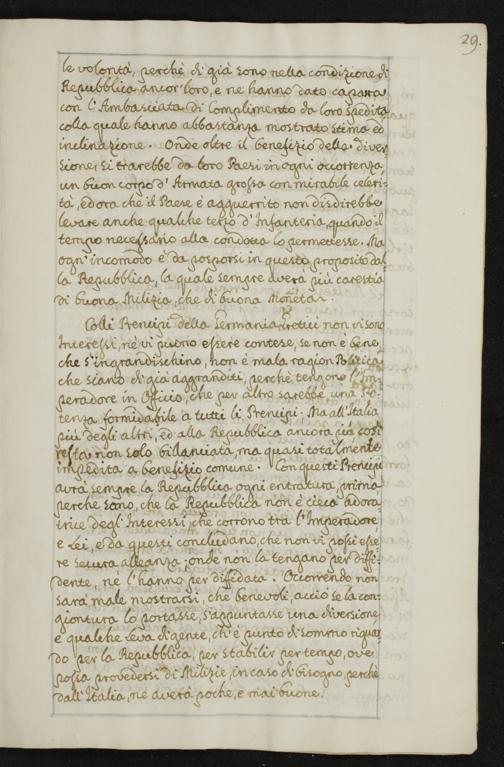 29.
le volontà, perchè di già sono nella condizione di
Republica ancor loro, e ne hanno dato caparra
con l'Ambasciata di Complimento da loro spedita
colla quale hanno abbastanza mostrato stima ed
inclinazione. Onde oltre il benefizio della diver
sione, si trarebbe da loro Paesi in ogni occorrenza
un buon corpo d'Armata grossa con mirabile celeri-
tà, ed ora che il Paese è agguerrito non disdirebbe
levare anche qualche terzo d'Infanteria, quando il
tempo necessario alla condotta lo permettesse. Ma
ogn'incomodo è da posporsi in questo proposito dal
la Republica, la quale sempre averà più carestia
di buona Milizia, che di buona Moneta.
Colli Prencipi della Germania eretici non vi sono
Interessi, nè vi puono essere contese, se non è bene,
che s'ingrandischino, non è mala ragion Politica
che siano di già aggranditi, perchè tengono l'Im-
peradore in Officio, che per altro sarebbe una Po-
tenza formidabile a tutti li Prencipi. Ma all'Italia
più degli altri, ed alla Republica ancora più così
resta non solo bilanciata, ma quasi totalmente
impedita a benefizio comune. Con questi Prencipi
avrà sempre la Republica ogni entratura, prima
perche sano, che la Republica non è cieca adora-
trice degl'Interessi, che corrono tra l'Imperadore,
e Lei, e da questi concludano, che non vi possi esse
re sicura alleanza; onde non la tengano per diffi-
dente, nè l'hanno per diffidata. Occorrendo non
sarà male mostrarsi, che benevoli, acciò se la con-
giontura lo portasse, s'appuntasse una diversione,
e qualche leva di gente, ch'è punto di sommo riguar
do per la Republica, per stabilir per tempo, ove
possa provedersi di Milizie, in caso di bisogno, perchè
dall'Italia, ne averà poche, e mai buone.